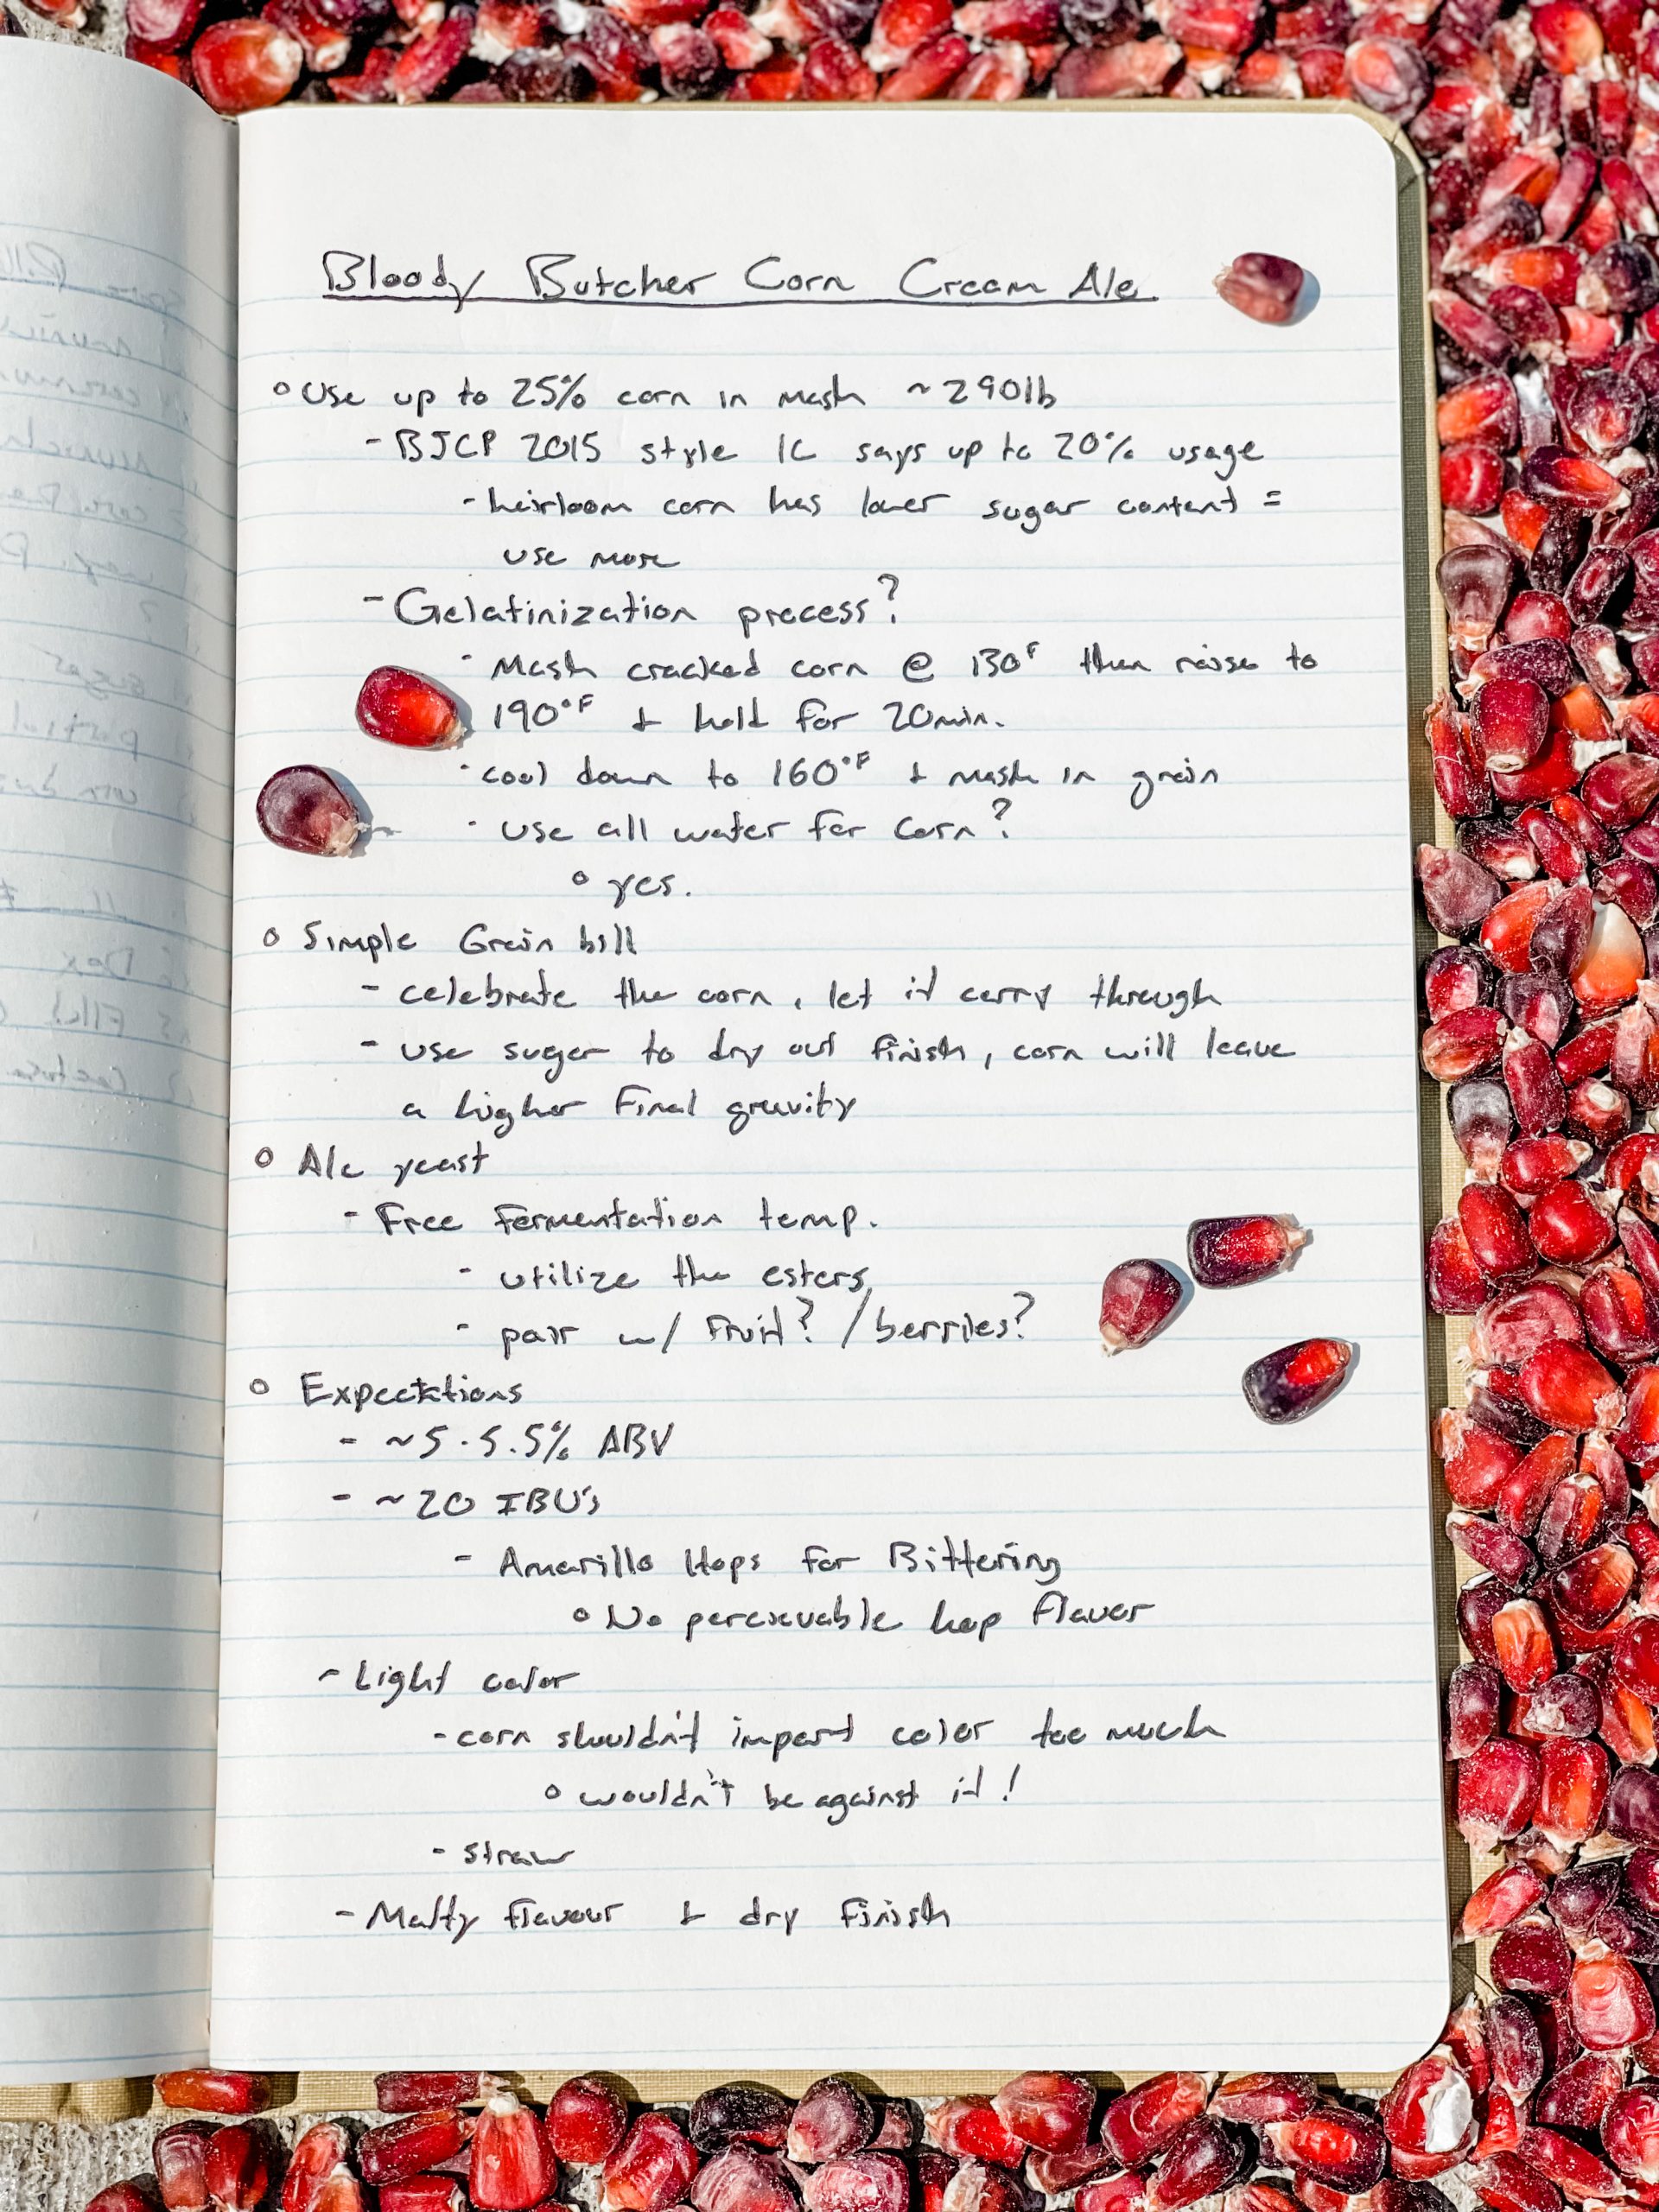 Bloody Butcher Corn Cream Ale
o Use up to 25% corn in mash ~290lb
- BJCP 2015 style 1C says up to 20% usage
- heirloom corn has lower sugar content =
use more
- Gelatinization process?
- Mash cracked corn @ 130°F then raise to
190°F + hold for 20min.
- cool down to 160°F + mash in grain
- use all water for corn?
o yes.
o Simple Grain bill
- celebrate the corn, let it carry through
- use sugar to dry out finish, corn will leave
a higher final gravity
o Ale yeast
- Free fermentation temp.
- utilize the esters
- pair w/ fruit? /berries?
o Expectations
- ~5-5.5% ABV
- ~20 IBU's
- Amarillo Hops for Bittering
o No percievable hop flavor
- Light color
- corn shouldn't impart color too much
o wouldn't be against it!
- straw
- Malty flavour + dry finish